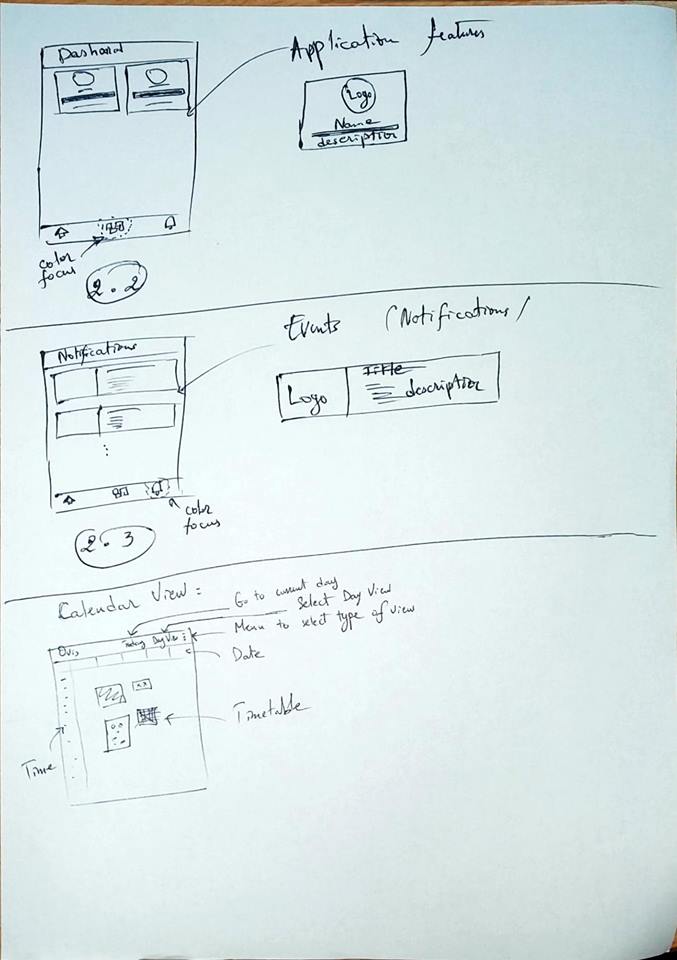 Dashboard
Application features
Logo
Name
description
color
focus
2.2
Events (Notifications/
Notifications
Logo
Title
description
color
focus
2.3
Calendar View:
Go to current day
Select Day View
Menu to select type of view
Today Day View
Date
Timetable
Time